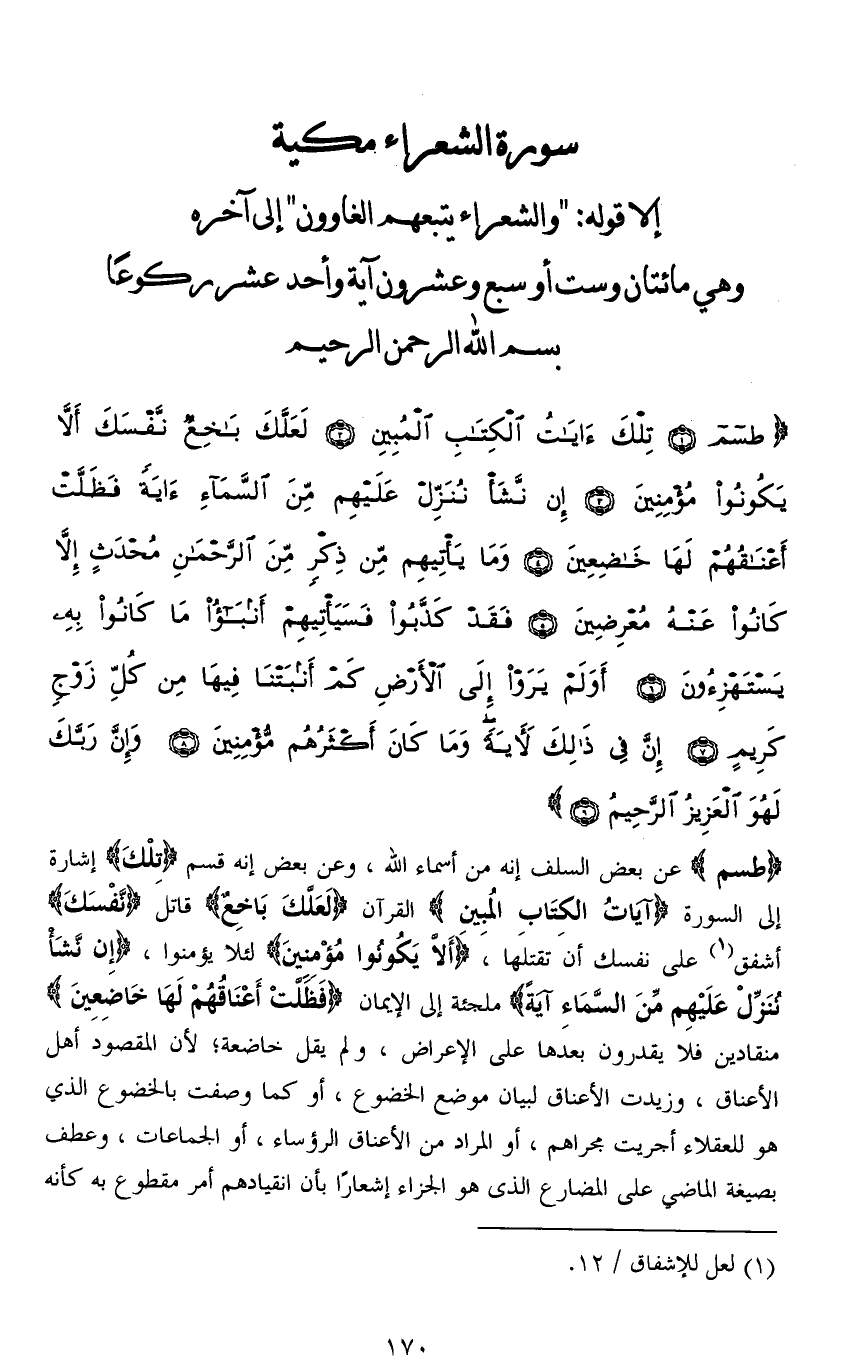 سورة الشعراء مكية
إلا قوله: "والشعراء يتبعهم الغاوون" إلى آخره
وهي مائتان وست أو سبع وعشرون آية وأحد عشر ركوعًا
بسم الله الرحمن الرحيم
﴿ طسٓمٓ ۝١ تِلْكَ ءَايَٰتُ ٱلْكِتَٰبِ ٱلْمُبِينِ ۝٢ لَعَلَّكَ بَٰخِعٌ نَّفْسَكَ أَلَّا
يَكُونُوا۟ مُؤْمِنِينَ ۝٣ إِن نَّشَأْ نُنَزِّلْ عَلَيْهِم مِّنَ ٱلسَّمَآءِ ءَايَةً فَظَلَّتْ
أَعْنَٰقُهُمْ لَهَا خَٰضِعِينَ ۝٤ وَمَا يَأْتِيهِم مِّن ذِكْرٍ مِّنَ ٱلرَّحْمَٰنِ مُحْدَثٍ إِلَّا
كَانُوا۟ عَنْهُ مُعْرِضِينَ ۝٥ فَقَدْ كَذَّبُوا۟ فَسَيَأْتِيهِمْ أَنۢبَٰٓؤُا۟ مَا كَانُوا۟ بِهِۦ
يَسْتَهْزِءُونَ ۝٦ أَوَلَمْ يَرَوْا۟ إِلَى ٱلْأَرْضِ كَمْ أَنۢبَتْنَا فِيهَا مِن كُلِّ زَوْجٍ
كَرِيمٍ ۝٧ إِنَّ فِى ذَٰلِكَ لَءَايَةً ۖ وَمَا كَانَ أَكْثَرُهُم مُّؤْمِنِينَ ۝٨ وَإِنَّ رَبَّكَ
لَهُوَ ٱلْعَزِيزُ ٱلرَّحِيمُ ۝٩ ﴾
﴿طسم ﴾ عن بعض السلف إنه من أسماء الله ، وعن بعض إنه قسم ﴿تِلْكَ﴾ إشارة
إلى السورة ﴿آيَاتُ الكِتَابِ المُبِينِ ﴾ القرآن ﴿لَعَلَّكَ بَاخِعٌ﴾ قاتل ﴿نَّفْسَكَ﴾
أشفق(١) على نفسك أن تقتلها ، ﴿أَلاَّ يَكُونُوا مُؤْمِنِينَ﴾ لئلا يؤمنوا ، ﴿إِن نَّشَأْ
نُنَزِّلْ عَلَيْهِم مِّنَ السَّمَاءِ آيَةً﴾ ملجئة إلى الإيمان ﴿فَظَلَّتْ أَعْنَاقُهُمْ لَهَا خَاضِعِينَ ﴾
منقادين فلا يقدرون بعدها على الإعراض ، ولم يقل خاضعة؛ لأن المقصود أهل
الأعناق ، وزيدت الأعناق لبيان موضع الخضوع ، أو كما وصفت بالخضوع الذي
هو للعقلاء أجريت مجراهم ، أو المراد من الأعناق الرؤساء ، أو الجماعات ، وعطف
بصيغة الماضي على المضارع الذى هو الجزاء إشعارًا بأن انقيادهم أمر مقطوع به كأنه
(١) لعل للإشفاق / ١٢.
١٧٠